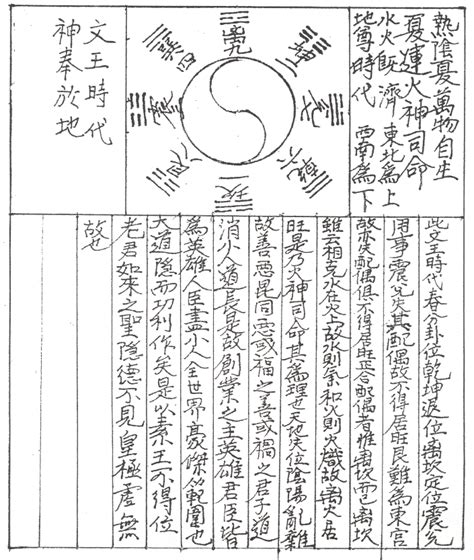 熱陰夏萬物自生
夏運火神司命
水火旣濟 東北爲上
地尊時代 西南爲下
离九
坤二
兌七
乾六
坎一
艮八
震三
巽四
文王時代
神奉於地
此文王時代春分卦位乾坤退位离坎定位震兌
用事震兌失其配偶故不得居旺艮雖爲東宮
故失配偶俱不得居旺正合配偶者惟离坎而已离坎
雖云相克水在火上故水則氣和火則火熾故离火居
旺是乃火神司命其爲理也天地失位陰陽亂雜
故善惡昆同惡或福之善或禍之君子道
消小人道長是故創業之主英雄君臣皆
爲英雄人臣盡小人全世界豪傑的範圍也
大道隱而功利作矣是以素王不得位
老君如來之聖隱德不見皇極虛無
故也